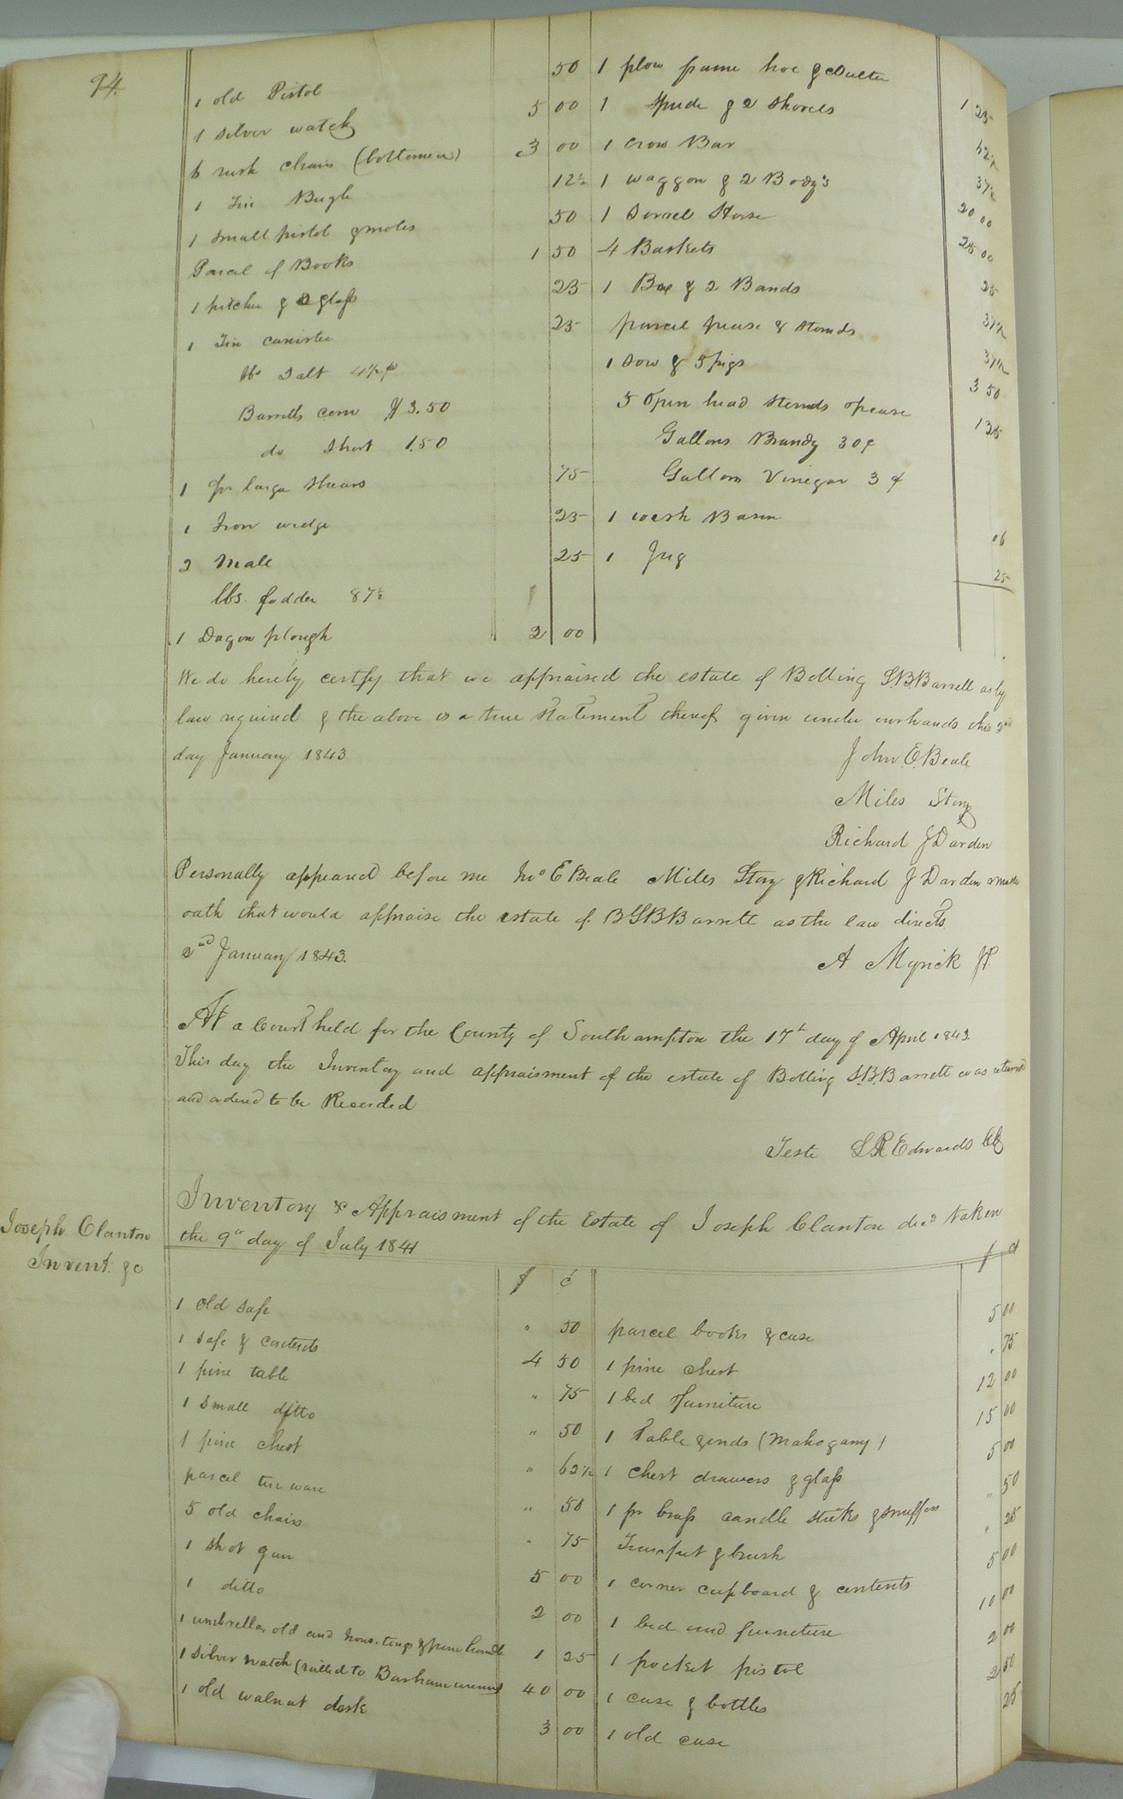 94
1 old Pistol 50
1 silver watch 5 00
6 rush chairs (bottomed) 3 00
1 Tin Bugle 12½
1 small pistol & moles 50
Parcel of Books 1 50
1 pitcher & 2 glass 25
1 Tin canister 25
lbs Salt
Barrells corn $3.50
do Short 1.50
1 pr large shears 75
1 Iron wedge 25
2 Male 25
lbs. fodder 87½
1 Dagon plough 2 00
1 plow frame hoe & coulter 1 25
1 Spade & 2 shovels 42½
1 Crow Bar 37½
1 waggon & 2 Body's 20 00
1 Sorrell Horse 25 00
4 Baskets 25
1 Box & 2 Bands 37½
parcel pease & stands 37½
1 sow & 5 pigs 3 50
5 Open head stands opease 1 25
Gallons Brandy 30¢
Gallons Vinegar 3 ¢
1 wash Basin 06
1 Jug 25
We do hereby certify that we appraised the estate of Bolling S.B.Barrett as by
law required & the above is a true statement thereof given under our hands this 2nd
day January 1843
John E. Beale
Miles Story
Richard J Darden
Personally appeared before me Jno E Beale Miles Story & Richard J Darden & made
oath that would appraise the estate of B S B Barrett as the law directs
2nd January 1843.
A Myrick JP.
At a Court held for the County of Southampton the 17th day of April 1843.
This day the Inventory and appraisment of the estate of Bolling S.B.Barrett was returned
and ordered to be Recorded
Teste L R Edwards CC
Joseph Clanton
Invent. &c
Inventory & Appraisment of the Estate of Joseph Clanton decd taken
the 9th day of July 1841
$ c
$ c
1 old safe " 50
1 safe & contents 4 50
1 pine table " 75
1 small ditto " 50
1 pine chest " 62½
parcel tin ware " 50
5 old chairs " 75
1 shot gun 5 00
1 ditto 2 00
1 umbrella, old and 1 25
1 silver watch (sailed to Barham 40 00
1 old walnut desk 3 00
parcel books & case 5 00
1 pine chest " 75
1 bed furniture 12 00
1 Table & ends (Mahogany) 15 00
1 chest drawers & glass 5 00
1 pr brass candle sticks & snuffers " 50
Trumpet & brush " 25
1 corner cupboard & contents 5 00
1 bed and furniture 10 00
1 pocket pistol 2 00
1 case & bottles 2 50
1 old case 25